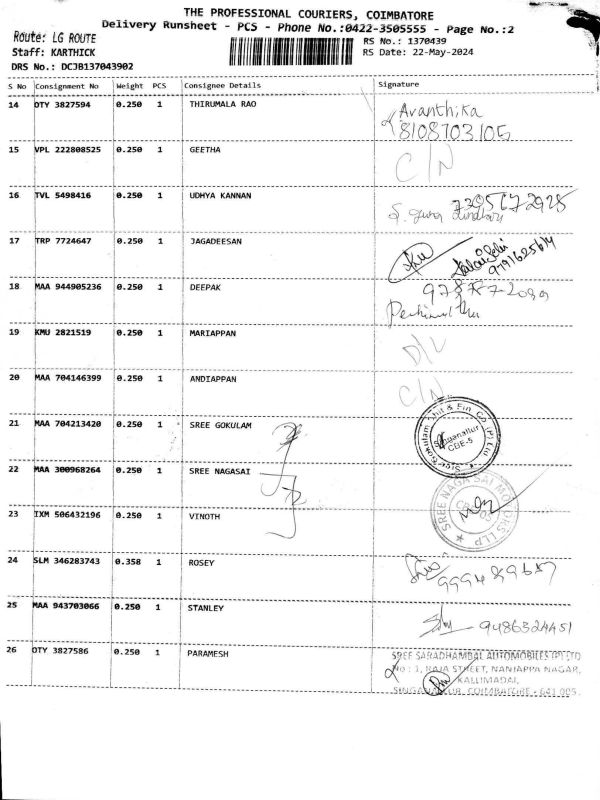 THE PROFESSIONAL COURIERS, COIMBATORE
Delivery Runsheet - PCS - Phone No.:0422-3505555 - Page No.:2
Route: LG ROUTE
RS No.: 1370439
Staff: KARTHICK
RS Date: 22-May-2024
DRS No.: DCJB137043902
S No Consignment No Weight PCS Consignee Details Signature
14 OTY 3827594 0.250 1 THIRUMALA RAO Avanthika
8108703105
15 VPL 222808525 0.250 1 GEETHA C/N
16 TVL 5498416 0.250 1 UDHYA KANNAN
17 TRP 7724647 0.250 1 JAGADEESAN
9791625614
18 MAA 944905236 0.250 1 DEEPAK
19 KMU 2821519 0.250 1 MARIAPPAN D/L
20 MAA 704146399 0.250 1 ANDIAPPAN C/N
21 MAA 704213420 0.250 1 SREE GOKULAM
Sree Gokulam Chit & Fin. Co. (P) Ltd
Singanallur
CBE-5
22 MAA 300968264 0.250 1 SREE NAGASAI
SREE NAGA SAI MOTORS LLP
23 IXM 506432196 0.250 1 VINOTH
24 SLM 346283743 0.358 1 ROSEY
25 MAA 943703066 0.250 1 STANLEY
9486324451
26 OTY 3827586 0.250 1 PARAMESH
SREE SARADHAMBAL AUTOMOBILES (P) LTD
No : 1, RAJA STREET, NANJAPPA NAGAR,
KALLIMADAI,
SINGANALLUR, COIMBATORE - 641 005.